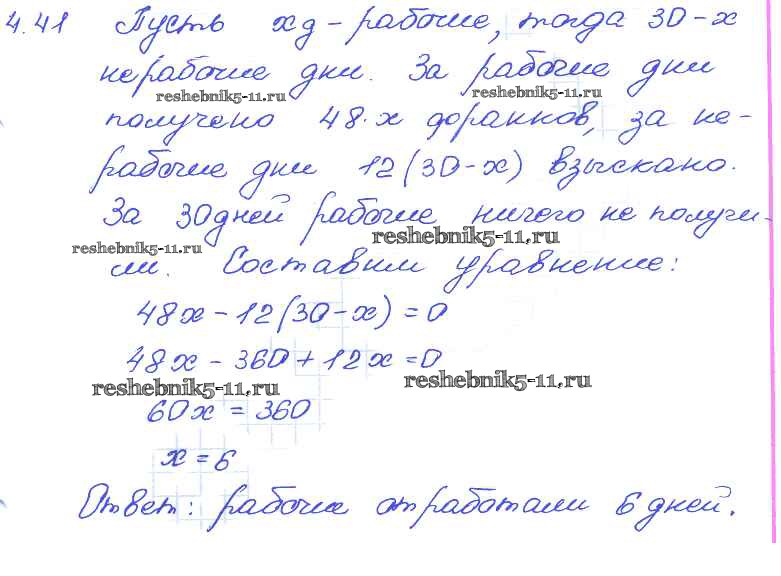 4.41 Пусть хд - рабочие, тогда 30-х
нерабочие дни. За рабочие дни
reshebnik5-11.ru reshebnik5-11.ru
получено 48·х франков, за не-
рабочие дни 12(30-х) взыскано.
За 30 дней рабочие ничего не получи-
reshebnik5-11.ru reshebnik5-11.ru
ли. Составим уравнение:
48х - 12(30-х) = 0
48х - 360 + 12х = 0
reshebnik5-11.ru reshebnik5-11.ru
60х = 360
х = 6
Ответ: рабочие отработали 6 дней.